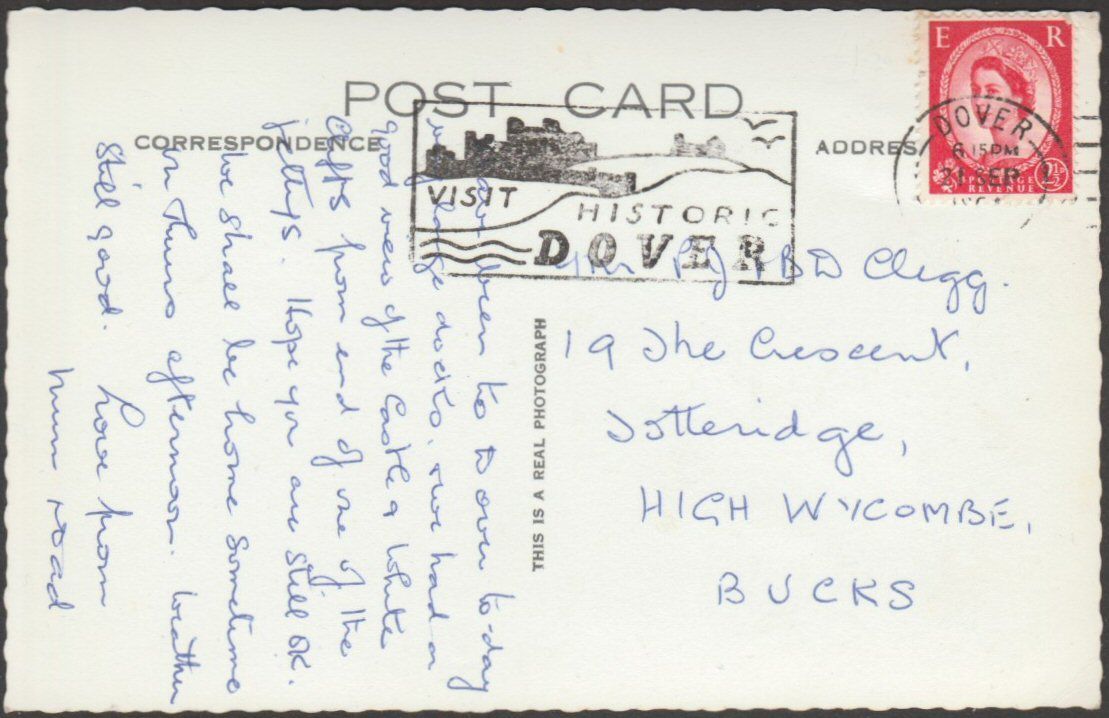 POST CARD
CORRESPONDENCE
ADDRES
E R
POSTAGE
REVENUE
2½D
DOVER
6 15PM
21 SEP
VISIT
HISTORIC
DOVER
THIS IS A REAL PHOTOGRAPH
been to Dover to-day
docks, & we had a
good view of the Castle & White
Clifts from end of one of the
jettys. Hope you are still OK.
We shall be home sometime
on Thurs afternoon. Weather
still good. Love from
Mum & Dad
P J & B D Clegg.
19 The Crescent,
Totteridge,
HIGH WYCOMBE,
BUCKS